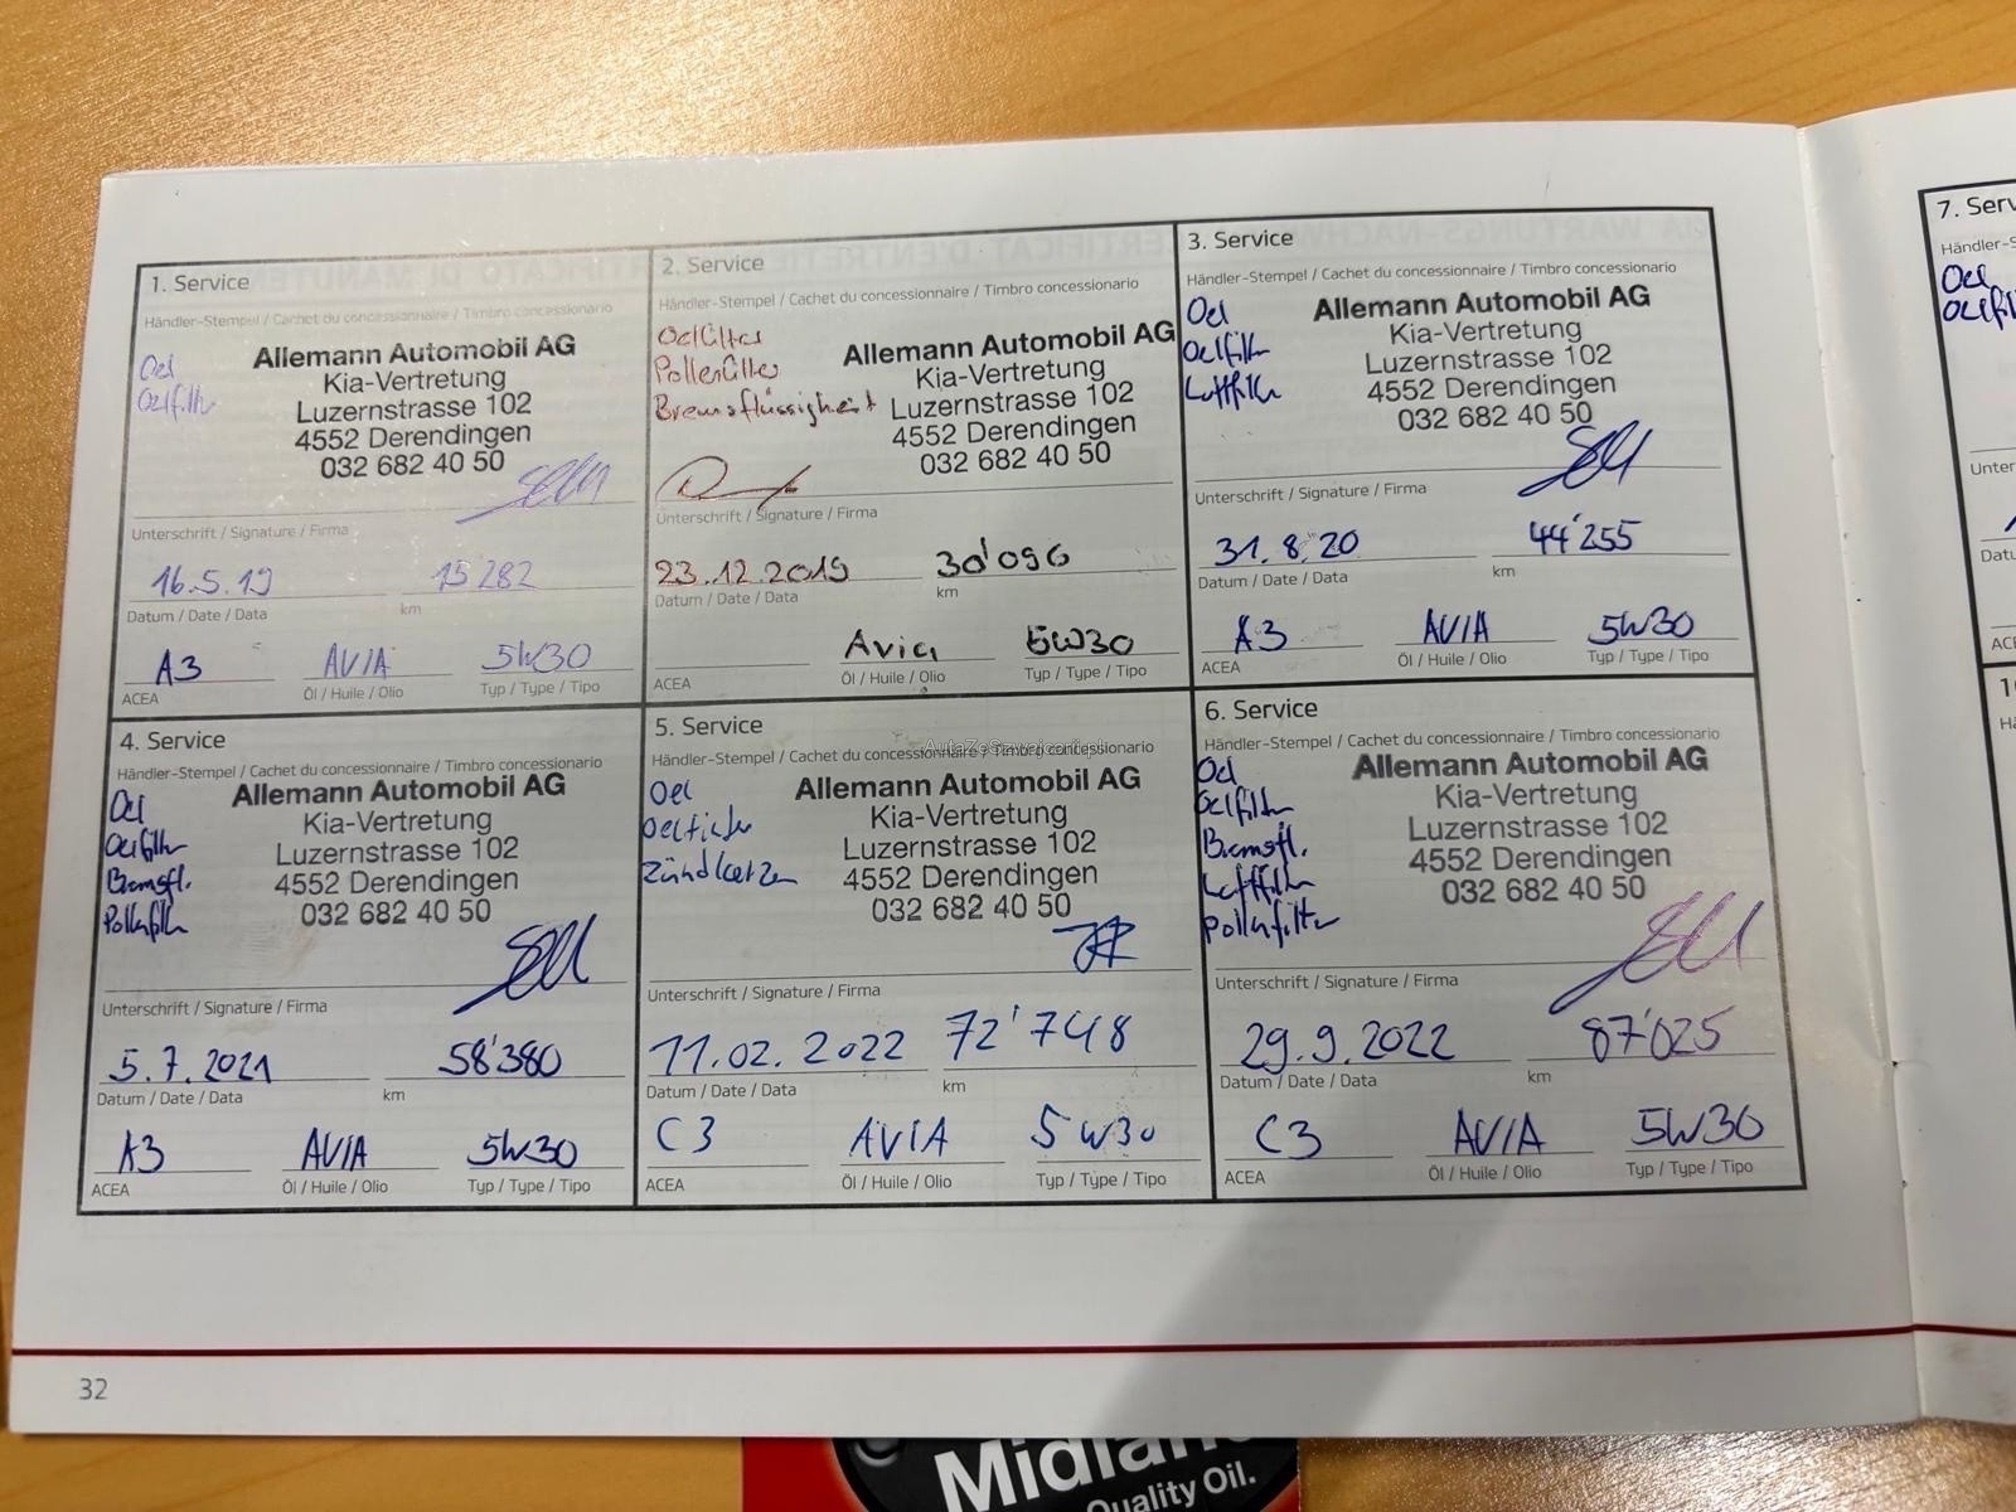 1. Service
Händler-Stempel / Cachet du concessionnaire / Timbro concessionario
Oel
Oelfilter
Allemann Automobil AG
Kia-Vertretung
Luzernstrasse 102
4552 Derendingen
032 682 40 50
Unterschrift / Signature / Firma
16.5.19 15'282
Datum / Date / Data km
A3 AVIA 5W30
ACEA Öl / Huile / Olio Typ / Type / Tipo
2. Service
Händler-Stempel / Cachet du concessionnaire / Timbro concessionario
Oelfilter
Pollenfilter
Bremsflüssigkeit
Allemann Automobil AG
Kia-Vertretung
Luzernstrasse 102
4552 Derendingen
032 682 40 50
Unterschrift / Signature / Firma
23.12.2019 30'096
Datum / Date / Data km
Avia 5W30
ACEA Öl / Huile / Olio Typ / Type / Tipo
3. Service
Händler-Stempel / Cachet du concessionnaire / Timbro concessionario
Oel
Oelfilter
Luftfilter
Allemann Automobil AG
Kia-Vertretung
Luzernstrasse 102
4552 Derendingen
032 682 40 50
Unterschrift / Signature / Firma
31.8.20 44'255
Datum / Date / Data km
A3 AVIA 5W30
ACEA Öl / Huile / Olio Typ / Type / Tipo
4. Service
Händler-Stempel / Cachet du concessionnaire / Timbro concessionario
Oel
Oelfilter
Bremsfl.
Pollenfilter
Allemann Automobil AG
Kia-Vertretung
Luzernstrasse 102
4552 Derendingen
032 682 40 50
Unterschrift / Signature / Firma
5.7.2021 58'380
Datum / Date / Data km
A3 AVIA 5W30
ACEA Öl / Huile / Olio Typ / Type / Tipo
5. Service
Händler-Stempel / Cachet du concessionnaire / Timbro concessionario
AutaZeSzwajcarii.pl
Oel
Oelfilter
Zündkerzen
Allemann Automobil AG
Kia-Vertretung
Luzernstrasse 102
4552 Derendingen
032 682 40 50
Unterschrift / Signature / Firma
11.02.2022 72'748
Datum / Date / Data km
C3 AVIA 5W30
ACEA Öl / Huile / Olio Typ / Type / Tipo
6. Service
Händler-Stempel / Cachet du concessionnaire / Timbro concessionario
Oel
Oelfilter
Bremsfl.
Luftfilter
Pollenfilter
Allemann Automobil AG
Kia-Vertretung
Luzernstrasse 102
4552 Derendingen
032 682 40 50
Unterschrift / Signature / Firma
29.9.2022 87'025
Datum / Date / Data km
C3 AVIA 5W30
ACEA Öl / Huile / Olio Typ / Type / Tipo
7. Serv
Händler-S
Oel
Oelfil
Unter
Datu
ACE
32
Midlan
Quality Oil.